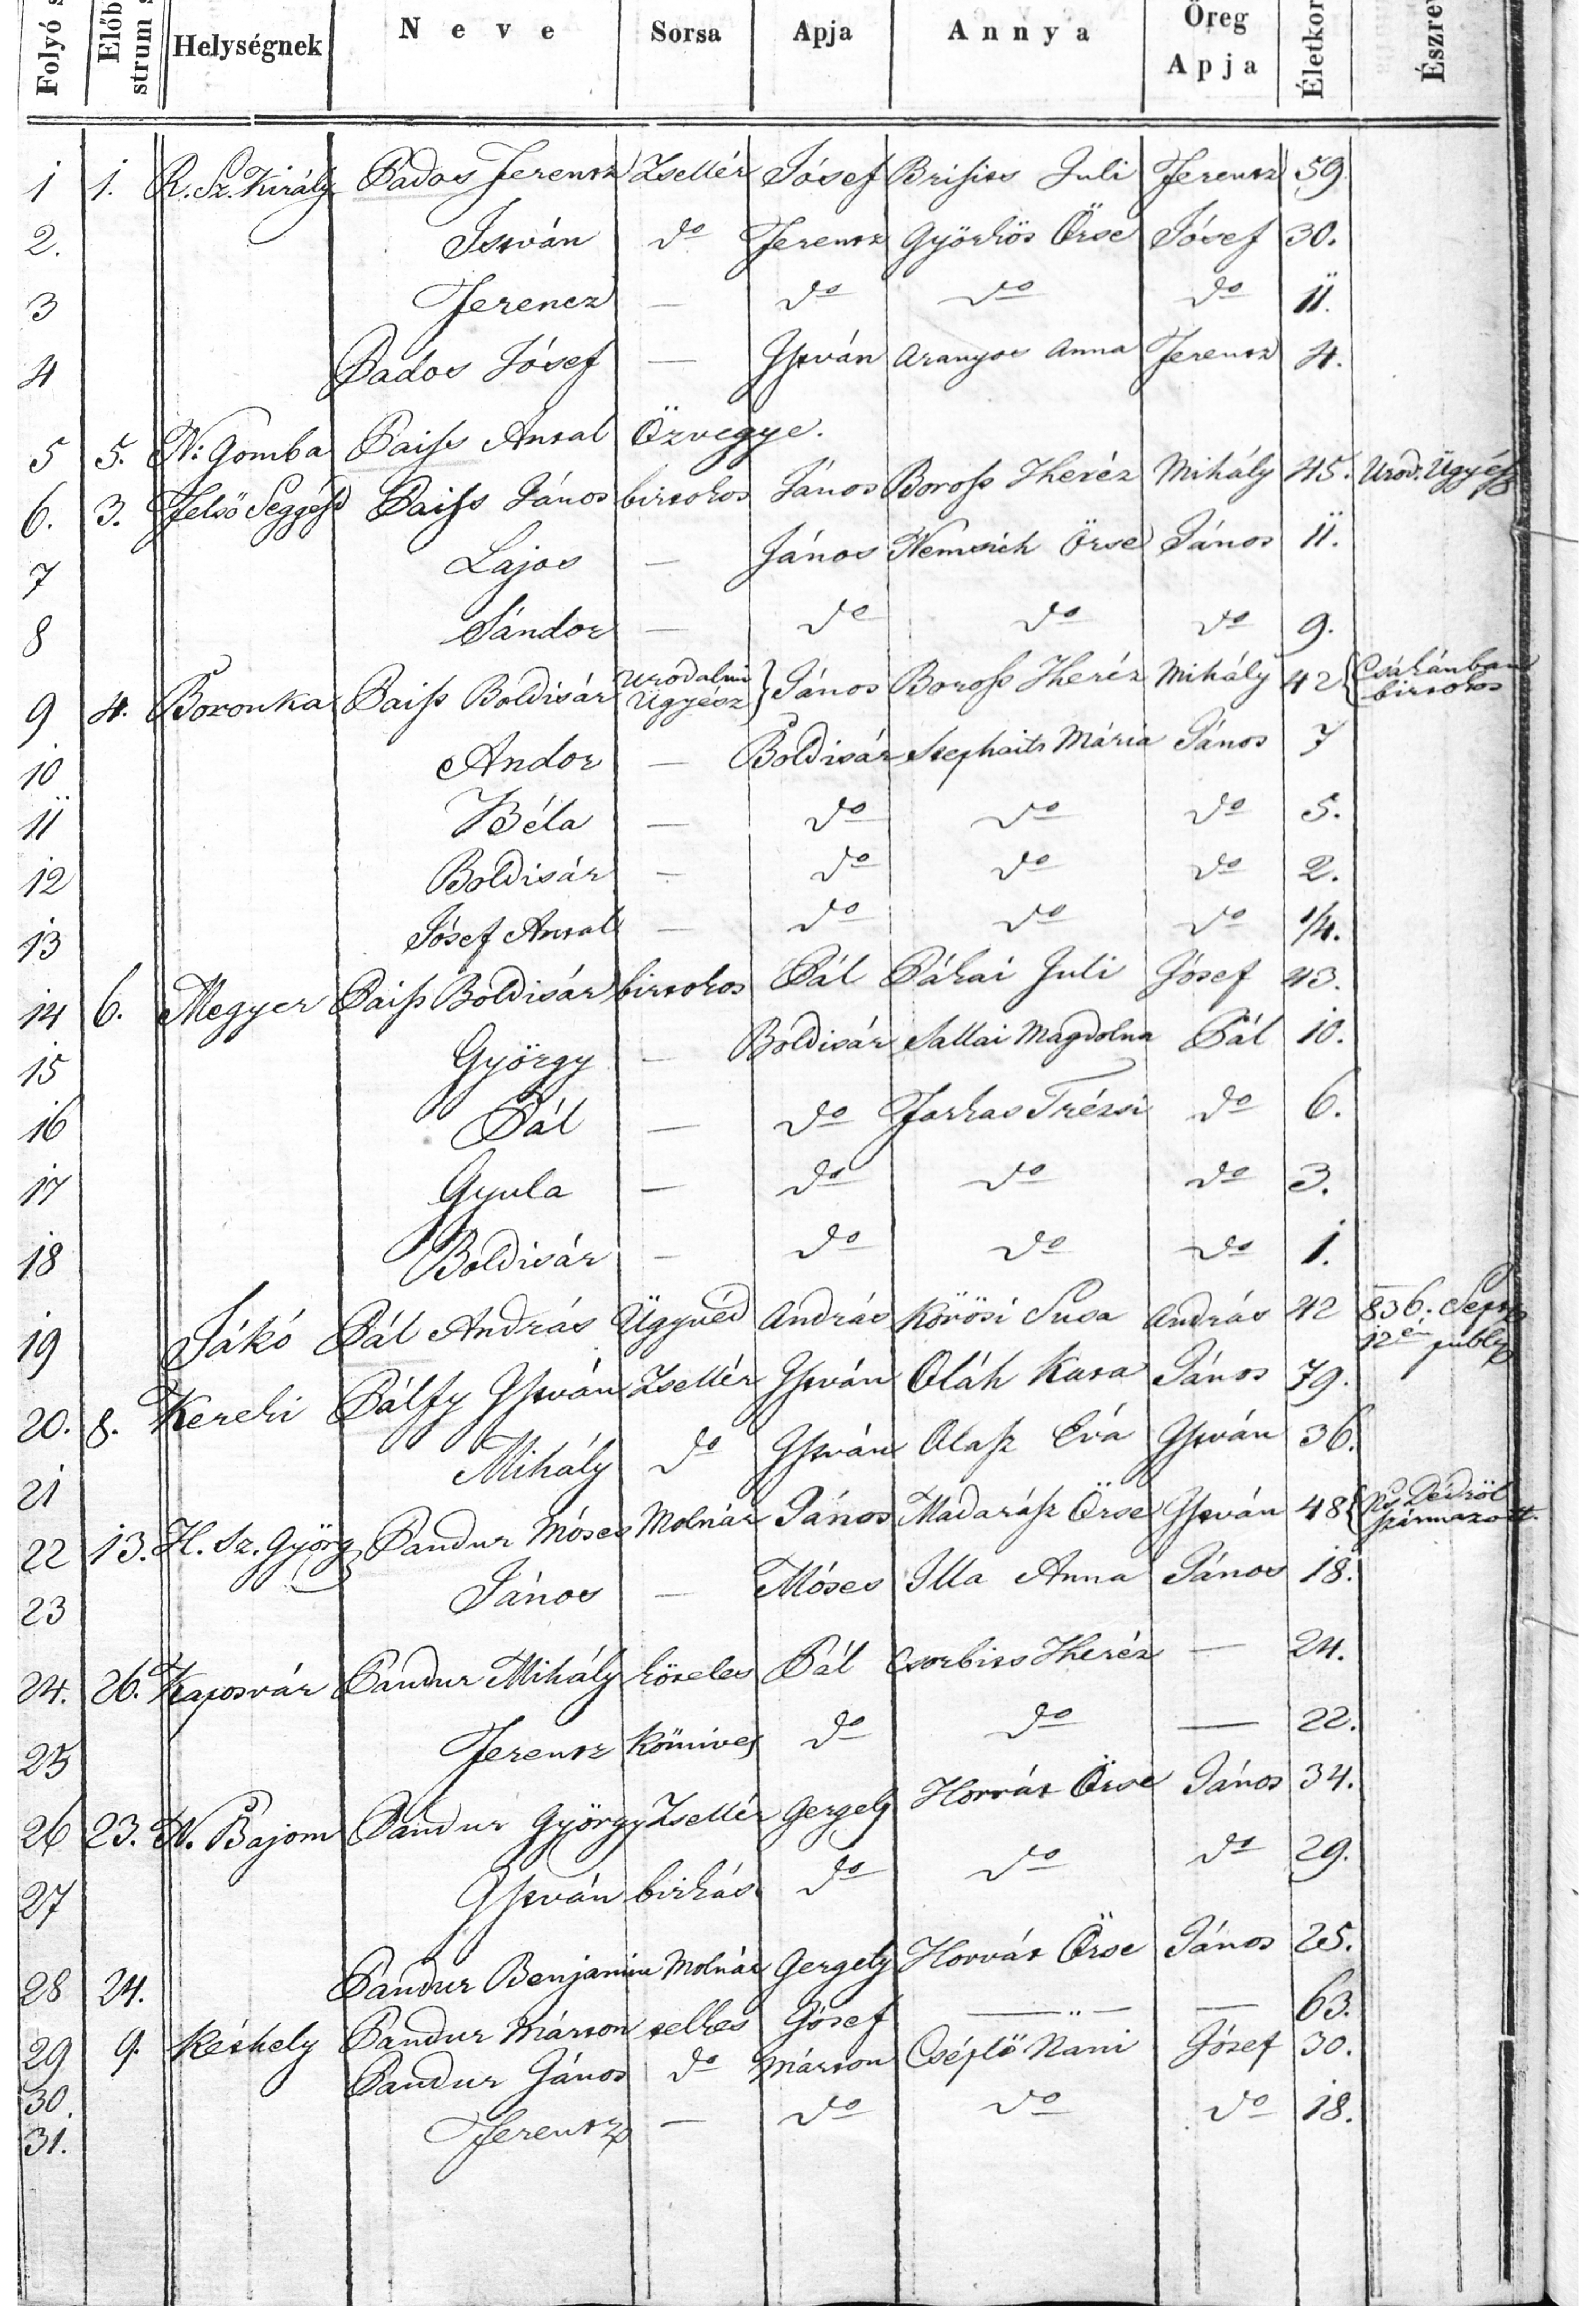 Folyó s
Előb
strum s
Helységnek
Neve
Sorsa
Apja
Annya
Öreg
Apja
Életkor
Észre
1 1. R. Sz. Király Pados Ferencz Zsellér Jósef Brisits Juli Ferencz 59.
2. István do Ferencz Györkös Örse Jósef 30.
3 Ferencz — do do do 11.
4 Pados Jósef — István Aranyos Anna Ferencz 4.
5 5. N: Gomba Paiss Antal Özvegye.
6. 3. Felső Seggesd Paiss János birtokos János Boross Theréz Mihály 45. Urod. Ügyész
7 Lajos — János Nemsich Örse János 11.
8 Sándor — do do do 9.
9 4. Boronka Paiss Boldisár Urodalmi Ügyész } János Boross Theréz Mihály 42 { Csákánban
birtokos
10 Andor — Boldisár Stephaits Mária János 7
11 Béla — do do do 5.
12 Boldisár — do do do 2.
13 Jósef Antal — do do do 1/4.
14 6. Megyer Paiss Boldisár birtokos Pál Pákai Juli Jósef 43.
15 György — Boldisár Sallai Magdolna Pál 10.
16 Pál — do Farkas Trézsi do 6.
17 Gyula — do do do 3.
18 Boldisár — do do do 1.
19 Jákó Pál András Ügyvéd András Körösi Susa András 42 836. Sept
12én publ
20. 8. Kereki Pálfy István Zsellér István Oláh Kata János 79.
21 Mihály do István Olasz Éva István 36.
22 13. H. Sz. Györg Pandur Móses Molnár János Madarász Örse István 48 { Ns. Dédröl
származott.
23 János — Móses Illa Anna János 18.
24. 26. Kaposvár Pandur Mihály köteles Pál Csorbits Theréz — 24.
25 Ferencz Kömives do do — 22.
26 23. N. Bajom Pandur György Zsellér Gergely Horvát Örse János 34.
27 István birkás do do do 29.
28 24. Pandur Benjamin Molnár Gergely Horvát Örse János 25.
29 9. Kéthely Pandur Márton telkes Jósef — — 63.
30 Pandur János do Márton Cséplö Nani Jósef 30.
31. Ferencz — do do do 18.